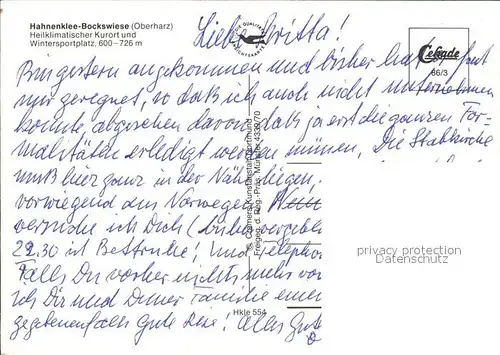 Hahnenklee-Bockswiese (Oberharz)
Heilklimatischer Kurort und
Wintersportplatz, 600–726 m
Liebe Britta!
Bin gestern angekommen und bisher hat fast
nur geregnet, so daß ich auch nicht unternehmen
konnte, abgesehen davon, daß ja erst die ganzen For-
malitäten erledigt werden müssen. Die Stabkirche
muß hier ganz in der Nähe liegen,
vorwiegend aus Norwegen
versuche ich Dich
22.30 ist Bettruhe! Und
Falls Du vorher nichts mehr von
ich Dir und Deiner Familie einen
gegebenenfalls Gute Reise! Alles Gute
Cekade
86/3
© Cramers Kunstanstalt Dortmund
Freigeg. d. Reg.-Präs. Münster 4339/70
Hkle 554
privacy protection
Datenschutz